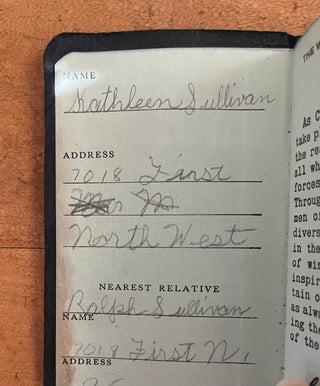 NAME
Kathleen Sullivan
ADDRESS
7018 First
North West
NEAREST RELATIVE
Ralph Sullivan
NAME
7018 First N.
ADDRESS
THE
As
take
the
all
forces
Throug
men o
divers
in the
of wi
inspir
tain o
as alwa
ing the
of the